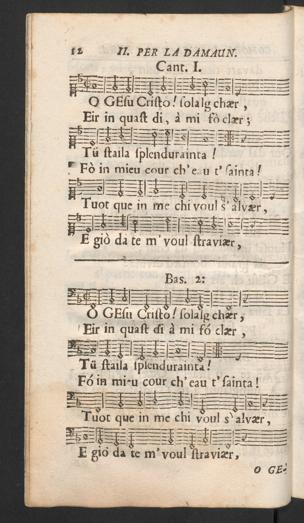 12 II. PER LA DAMAUN.
Cant. I.
O GEsu Cristo! solalg chær,
Eir in quast di, à mi fò clær;
Tü staila splendurainta!
Fò in mieu cour ch'eau t'sainta!
Tuot que in me chi voul s'alvær,
E giò da te m'voul straviær,
Bas. 2:
O GEsu Cristo! solalg chær,
Eir in quast di à mi fó clær,
Tü staila splendurainta!
Fó in mi-u cour ch'eau t'sainta!
Tuot que in me chi voul s'alvær,
E giò da te m'voul straviær,
O GE-